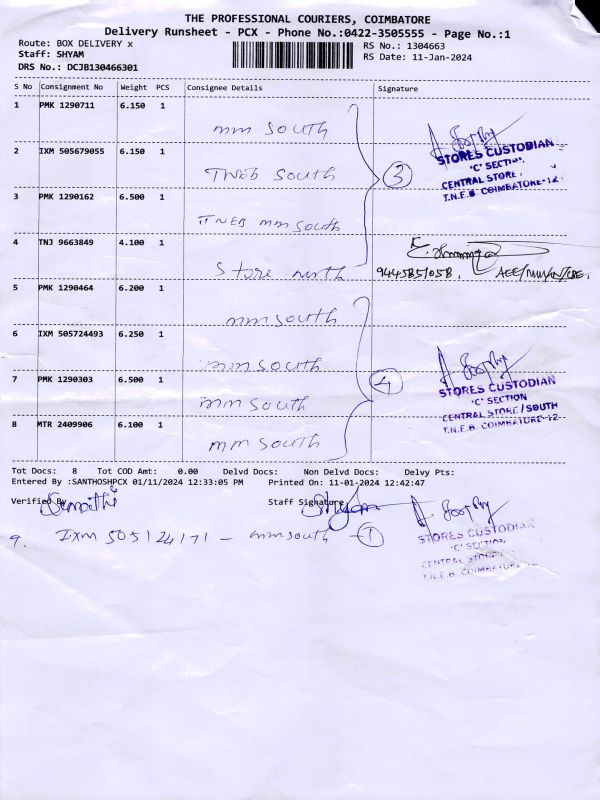 THE PROFESSIONAL COURIERS, COIMBATORE
Delivery Runsheet - PCX - Phone No.:0422-3505555 - Page No.:1
Route: BOX DELIVERY x
Staff: SHYAM
DRS No.: DCJB130466301
RS No.: 1304663
RS Date: 11-Jan-2024
S No Consignment No Weight PCS Consignee Details Signature
1 PMK 1290711 6.150 1
mm SOUTH
2 IXM 505679055 6.150 1
TNEB SOUTH
3 PMK 1290162 6.500 1
TNEB mm South
4 TNJ 9663849 4.100 1
Store north
3
STORES CUSTODIAN
'C' SECTION
CENTRAL STORE
T.N.E.B. COIMBATORE-12
9445851058, AEE/MM/N/CBE.
5 PMK 1290464 6.200 1
mm south
6 IXM 505724493 6.250 1
mm south
7 PMK 1290303 6.500 1
mm south
8 MTR 2409906 6.100 1
mm south
4
STORES CUSTODIAN
'C' SECTION
CENTRAL STORE/SOUTH
T.N.E.B. COIMBATORE-12
Tot Docs: 8 Tot COD Amt: 0.00 Delvd Docs: Non Delvd Docs: Delvy Pts:
Entered By :SANTHOSHPCX 01/11/2024 12:33:05 PM Printed On: 11-01-2024 12:42:47
Verified By Staff Signature
Shyam
9. IXM 505124171 - mm south - 1
STORES CUSTODIAN
'C' SECTION
CENTRAL STORE
T.N.E.B. COIMBATORE-12